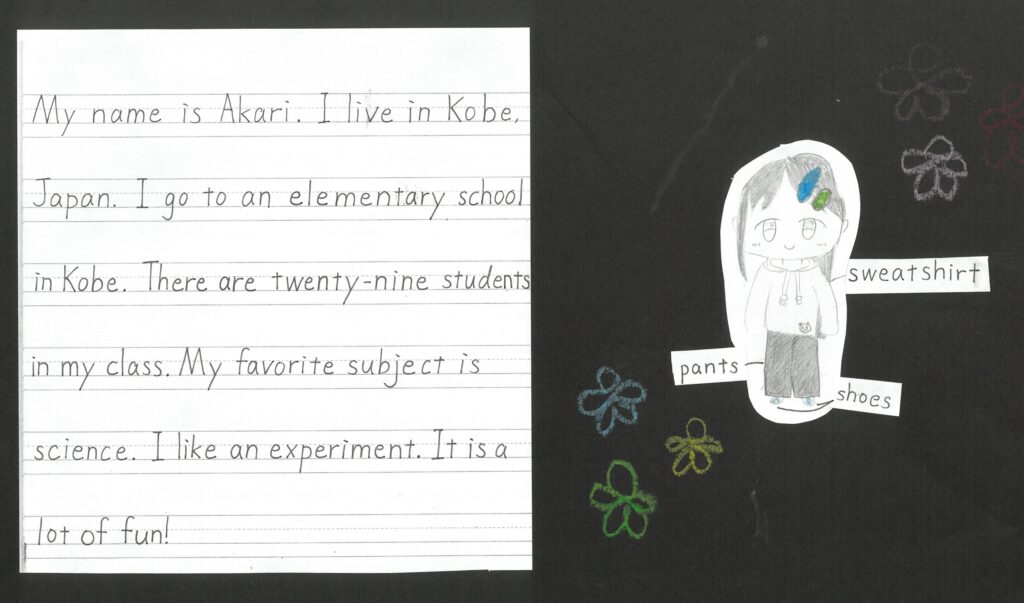 My name is Akari. I live in Kobe,
Japan. I go to an elementary school
in Kobe. There are twenty-nine students
in my class. My favorite subject is
science. I like an experiment. It is a
lot of fun!
sweatshirt
pants
shoes